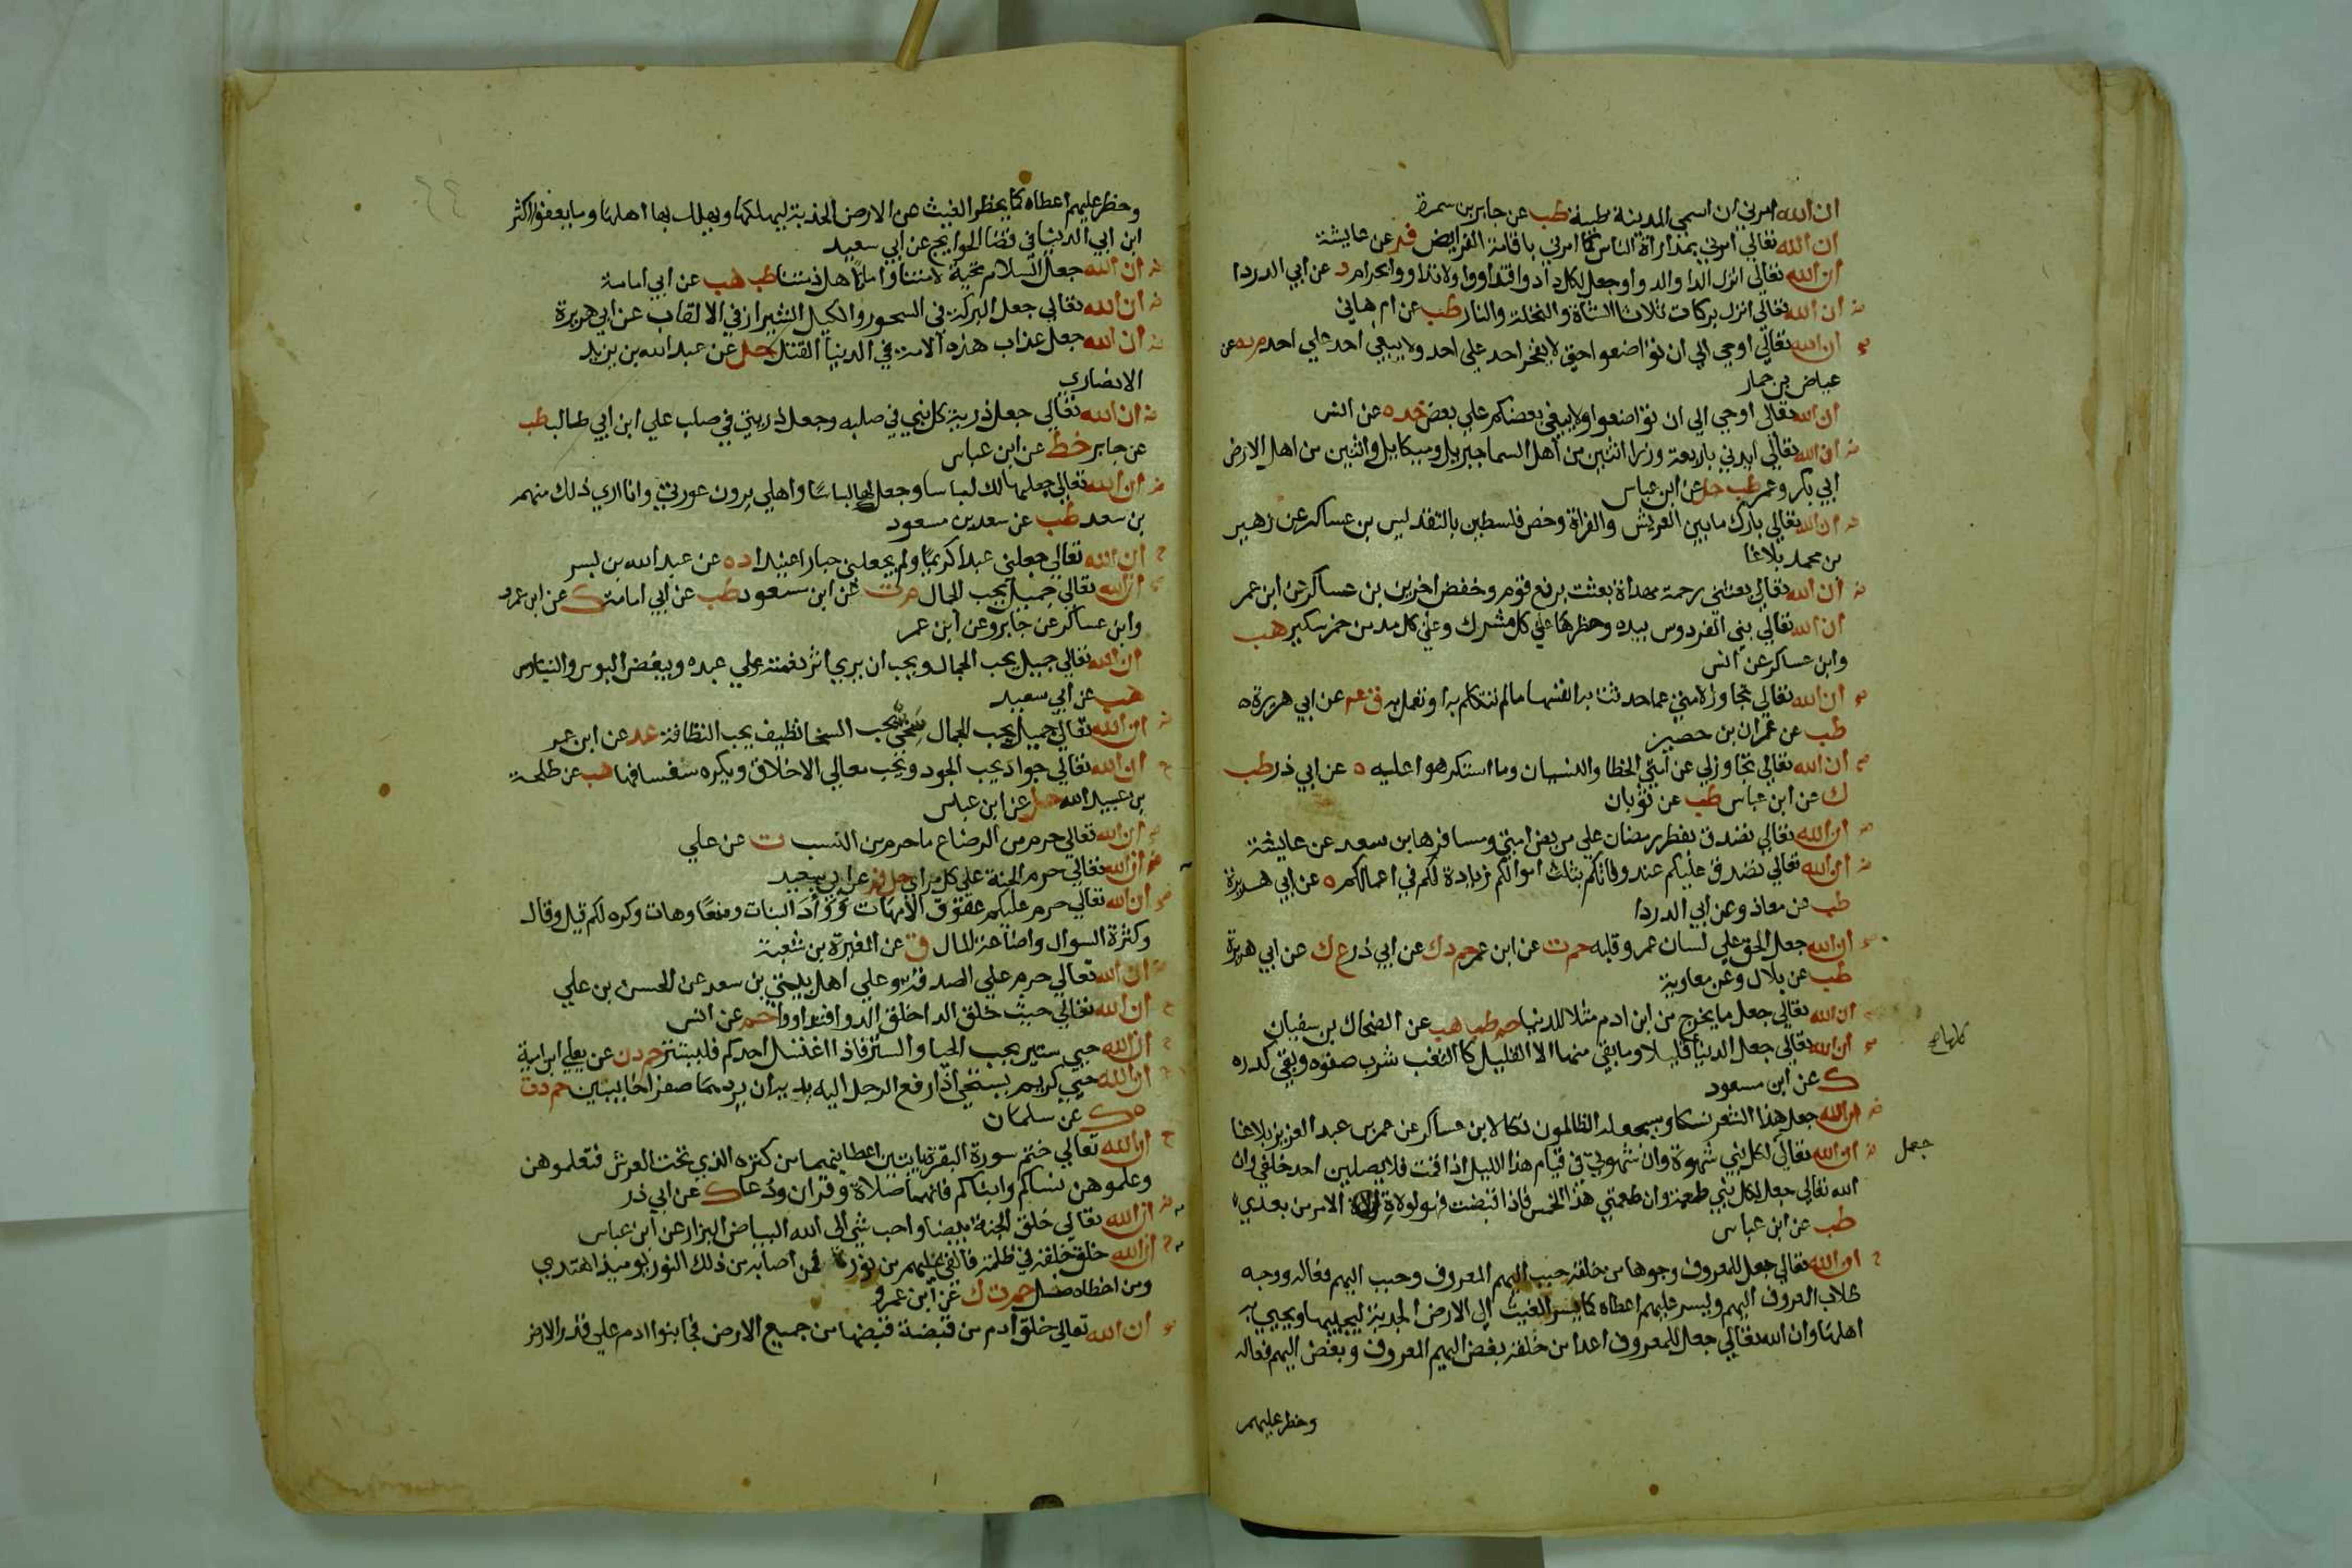 ان الله امرني ان اسمي المدينة طيبة طب عن جابر بن سمرة
ان الله تعالي امرني بمداراة الناس كما امرني باقامة الفرايض فر عن عايشة
ان الله تعالي انزل الدا والدوا وجعل لكل دا دوا فتداووا ولا تداووا بحرام د عن ابي الدردا
ان الله تعالي انزل بركات ثلاثا الشاة والنخلة والنار طب عن ام هاني
ان الله تعالي اوحي الي ان تواضعوا حتي لا يفخر احد علي احد ولا يبغي احد علي احد م ده عن
عياض بن حمار
ان الله تعالي اوحي الي ان تواضعوا ولا يبغي بعضكم علي بعض خد ه عن انس
ان الله تعالي ايدني باربعة وزرا اثنين من اهل السما جبريل وميكايل واثنين من اهل الارض
ابي بكر وعمر طب حل عن ابن عباس
ان الله تعالي بارك ما بين العريش والفراة وخص فلسطين بالتقديس بن عساكر عن زهير
بن محمد بلاغا
ان الله تعالي بعثني رحمة مهداة بعثت برفع قوم وخفض اخرين بن عساكر عن ابن عمر
ان الله تعالي بني الفردوس بيده وحظرها علي كل مشرك وعلي كل مدمن خمر سكير هب
وابن عساكر عن انس
ان الله تعالي تجاوز لامتي عما حدثت به انفسها ما لم تتكلم به او تعمل به ق عم عن ابي هريرة ه
طب عن عمران بن حصين
ان الله تعالي تجاوز لي عن امتي الخطا والنسيان وما استكرهوا عليه ه عن ابي ذر طب
ك عن ابن عباس طب عن ثوبان
ان الله تعالي تصدق بفطر رمضان علي مريض امتي ومسافرها بن سعد عن عايشة
ان الله تعالي تصدق عليكم عند وفاتكم بثلث اموالكم زيادة لكم في اعمالكم ه عن ابي هريرة
طب عن معاذ وعن ابي الدردا
ان الله جعل الحق علي لسان عمر وقلبه حم ت عن ابن عمر حم د ك عن ابي ذر ع ك عن ابي هريرة
طب عن بلال وعن معاوية
ان الله تعالي جعل ما يخرج من ابن ادم مثلا للدنيا حم طب هب عن الضحاك بن سفيان
ان الله تعالي جعل الدنيا قليلا وما بقي منها الا القليل كالثغب شرب صفوه وبقي كدره
كلها صح
ك عن ابن مسعود
ان الله جعل هذا الشعر نسكا وسيجعله الظالمون نكالا بن عساكر عن عمر بن عبد العزيز بلاغا
ان الله تعالي لكل نبي شهوة وان شهوتي في قيام هذا الليل اذا قمت فلا يصلين احد خلفي وان
جعل
الله تعالي جعل لكل نبي طعمة وان طعمتي هذا الخمس فاذا قبضت فهو لولاة الامر من بعدي
طب عن ابن عباس
ان الله تعالي جعل للمعروف وجوها من خلقه حبب اليهم المعروف وحبب اليهم فعاله ووجه
طلاب المعروف اليهم ويسر عليهم اعطاه كما يسر الغيث الي الارض الجدبة ليحييها ويحيي به
اهلها وان الله تعالي جعل للمعروف اعدا من خلقه بغض اليهم المعروف وبغض اليهم فعاله
وحظر عليهم
وحظر عليهم اعطاه كما يحظر الغيث عن الارض الجدبة ليهلكها ويهلك بها اهلها وما يعفوا اكثر
ابن ابي الدنيا في قضا الحوايج عن ابي سعيد
ان الله جعل السلام تحية لامتنا وامانا لاهل ذمتنا طب هب عن ابي امامة
ان الله تعالي جعل البركة في السحور والكيل الشيرازي في الالقاب عن ابي هريرة
ان الله جعل عذاب هذه الامة في الدنيا القتل حل عن عبد الله بن يزيد
الانصاري
ان الله تعالي جعل ذرية كل نبي في صلبه وجعل ذريتي في صلب علي ابن ابي طالب طب
عن جابر خط عن ابن عباس
ان الله تعالي جعلها لك لباسا وجعلك لها لباسا واهلي يرون عورتي وانا اري ذلك منهم
بن سعد طب عن سعد بن مسعود
ان الله تعالي جعلني عبدا كريما ولم يجعلني جبارا عنيدا د ه عن عبد الله بن بسر
ان الله تعالي جميل يحب الجمال م ت عن ابن مسعود طب عن ابي امامة ك عن ابن عمر
وابن عساكر عن جابر وعن ابن عمر
ان الله تعالي جميل يحب الجمال ويحب ان يري اثر نعمته علي عبده ويبغض البوس والتباوس
هب عن ابي سعيد
ان الله تعالي جميل يحب الجمال سخي يحب السخا نظيف يحب النظافة عد عن ابن عمر
ان الله تعالي جواد يحب الجود ويحب معالي الاخلاق ويكره سفسافها هب عن طلحة
بن عبيد الله حل عن ابن عباس
ان الله تعالي حرم من الرضاع ما حرم من النسب ت عن علي
ان الله تعالي حرم الجنة علي كل مراي حل فر عن ابي سعيد
ان الله تعالي حرم عليكم عقوق الامهات ووأد البنات ومنعا وهات وكره لكم قيل وقال
وكثرة السوال واضاعة المال ق عن المغيرة بن شعبة
ان الله تعالي حرم علي الصدقة وعلي اهل بيتي بن سعد عن الحسن بن علي
ان الله تعالي حيث خلق الدا خلق الدوا فتداووا حم عن انس
ان الله حيي ستير يحب الحيا والستر فاذا اغتسل احدكم فليستتر حم د ن عن يعلي ابن امية
ان الله حيي كريم يستحي اذا رفع الرجل اليه يديه ان يردهما صفرا خايبتين حم د ت
ه ك عن سلمان
ان الله تعالي ختم سورة البقرة بايتين اعطانيهما من كنزه الذي تحت العرش فتعلموهن
وعلموهن نساكم وابناكم فانهما صلاة وقران ودعا ك عن ابي ذر
ان الله تعالي خلق الجنة بيضا واحب شي الي الله البياض البزار عن ابن عباس
ان الله خلق خلقه في ظلمة فالقي عليهم من نوره فمن اصابه من ذلك النور يوميذ اهتدي
ومن اخطاه ضل حم ت ك عن ابن عمرو
ان الله تعالي خلق ادم من قبضة قبضها من جميع الارض فجا بنوا ادم علي قدر الارض